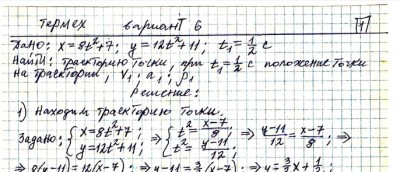 термех вариант 6 1
Дано: x=8t²+7; y=12t²+11; t₁=1/2 c
Найти: траекторию точки, при t₁=1/2 c положение точки
на траектории, v₁; a₁; ρ₁
Решение:
1) Находим траекторию точки.
Задано: {x=8t²+7; y=12t²+11; ⇒ {t²=(x-7)/8; t²=(y-11)/12; ⇒ (y-11)/12=(x-7)/8 ⇒
⇒ 8(y-11)=12(x-7) ⇒ y-11=3/2(x-7) ⇒ y=3/2x+1/2;